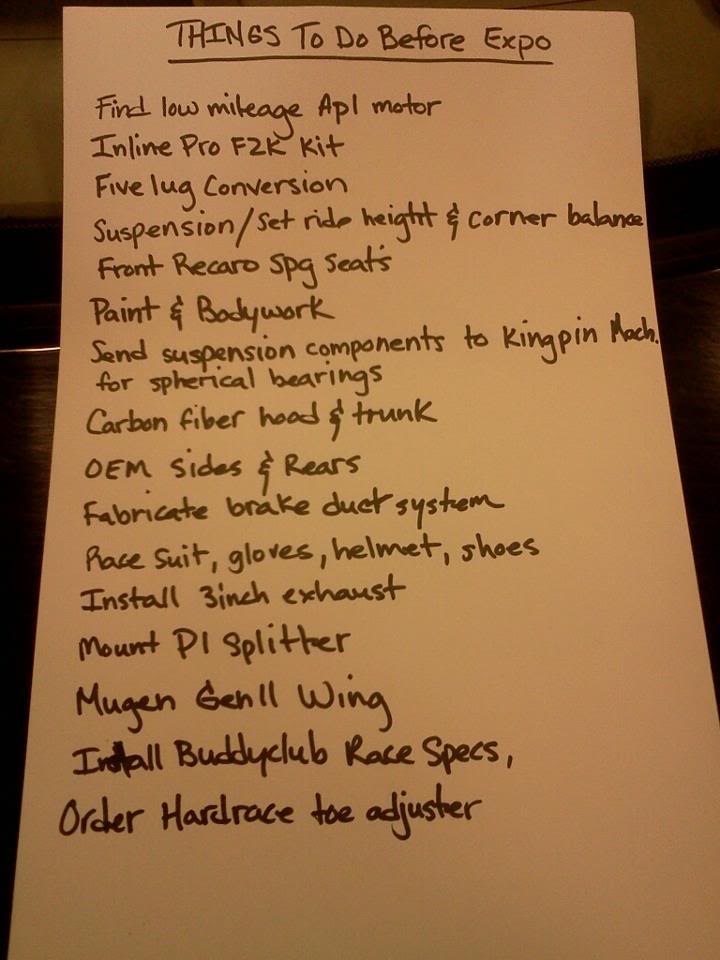 THINGS To Do Before Expo
Find low mileage Ap1 motor
Inline Pro F2K Kit
Five lug Conversion
Suspension/Set ride height & corner balance
Front Recaro Spg Seats
Paint & Bodywork
Send suspension components to Kingpin Mach.
for spherical bearings
Carbon fiber hood & trunk
OEM Sides & Rears
Fabricate brake duct system
Race Suit, gloves, helmet, shoes
Install 3inch exhaust
Mount P1 Splitter
Mugen Gen II Wing
Install Buddyclub Race Specs,
Order Hardrace toe adjuster